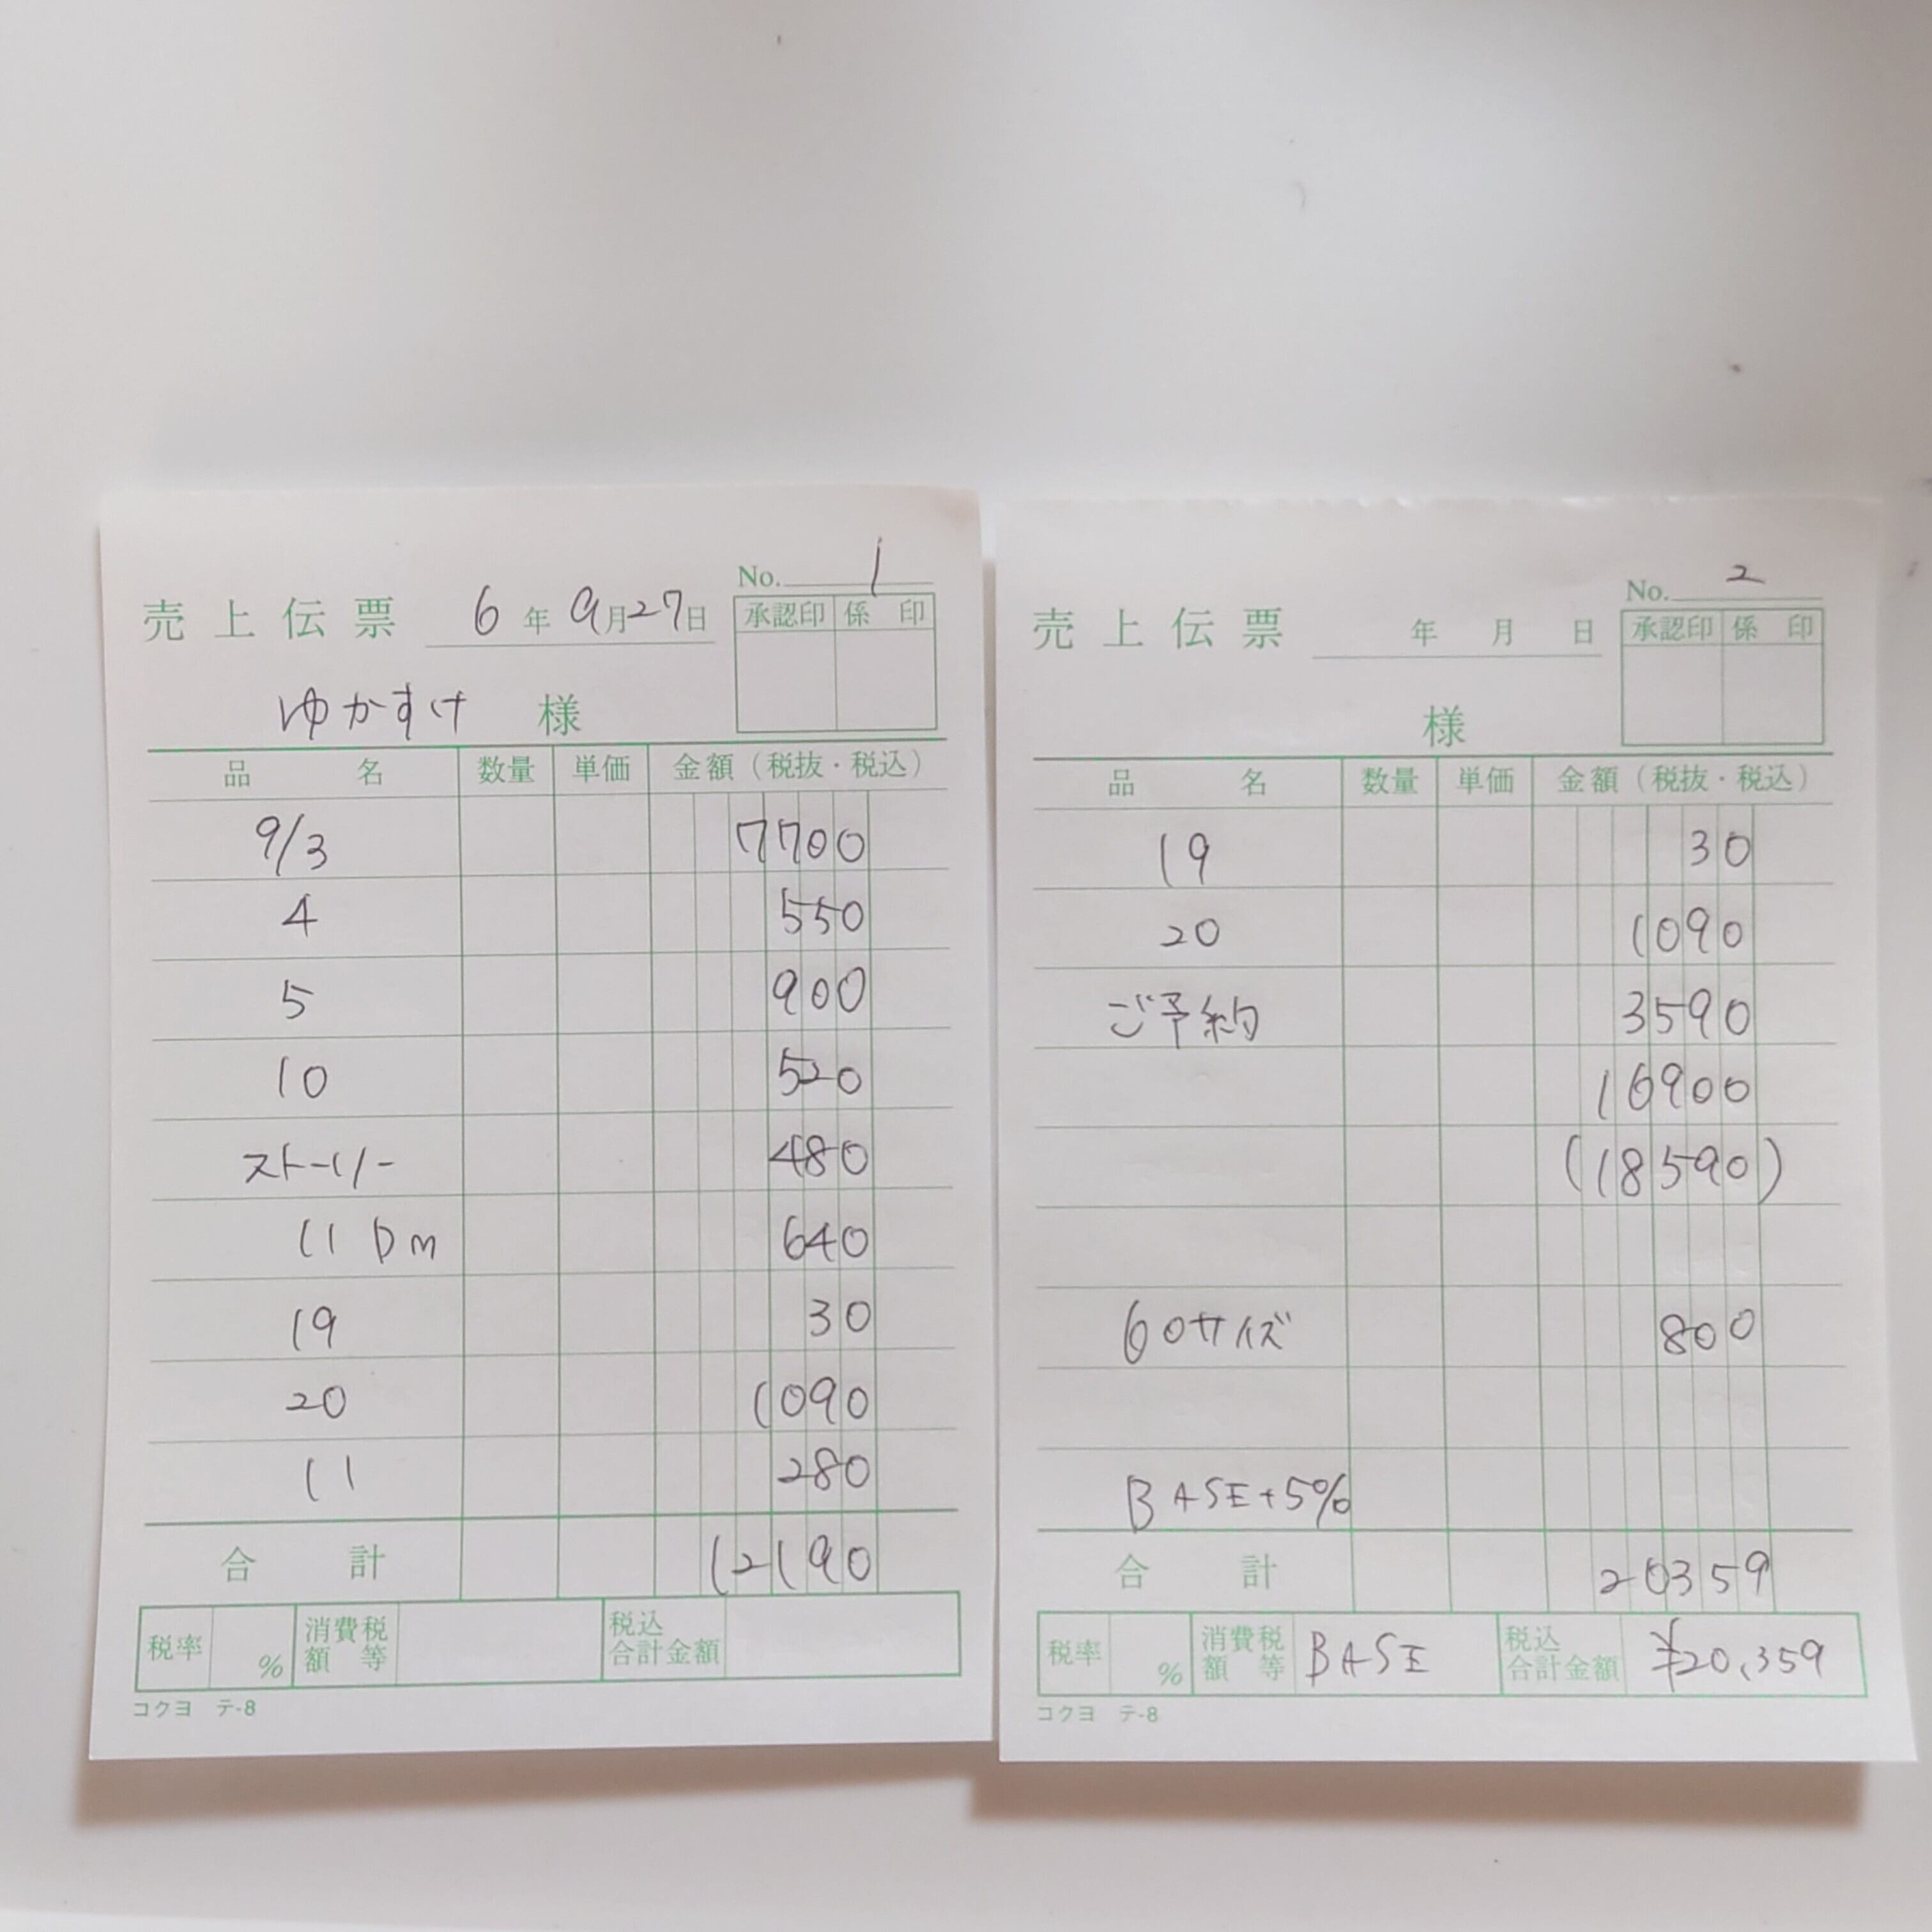 No. 1
売上伝票 6年9月27日
承認印 係印
ゆかすけ 様
品名 数量 単価 金額(税抜・税込)
9/3 7700
4 550
5 900
10 520
ストーリー 480
11 DM 640
19 30
20 1090
11 280
合計 12190
税率 % 消費税額等 税込合計金額
コクヨ テ-8
No. 2
売上伝票 年 月 日
承認印 係印
様
品名 数量 単価 金額(税抜・税込)
19 30
20 1090
ご予約 3590
16900
(18590)
60サイズ 800
BASE+5%
合計 20359
税率 % 消費税額等 BASE 税込合計金額 ¥20,359
コクヨ テ-8